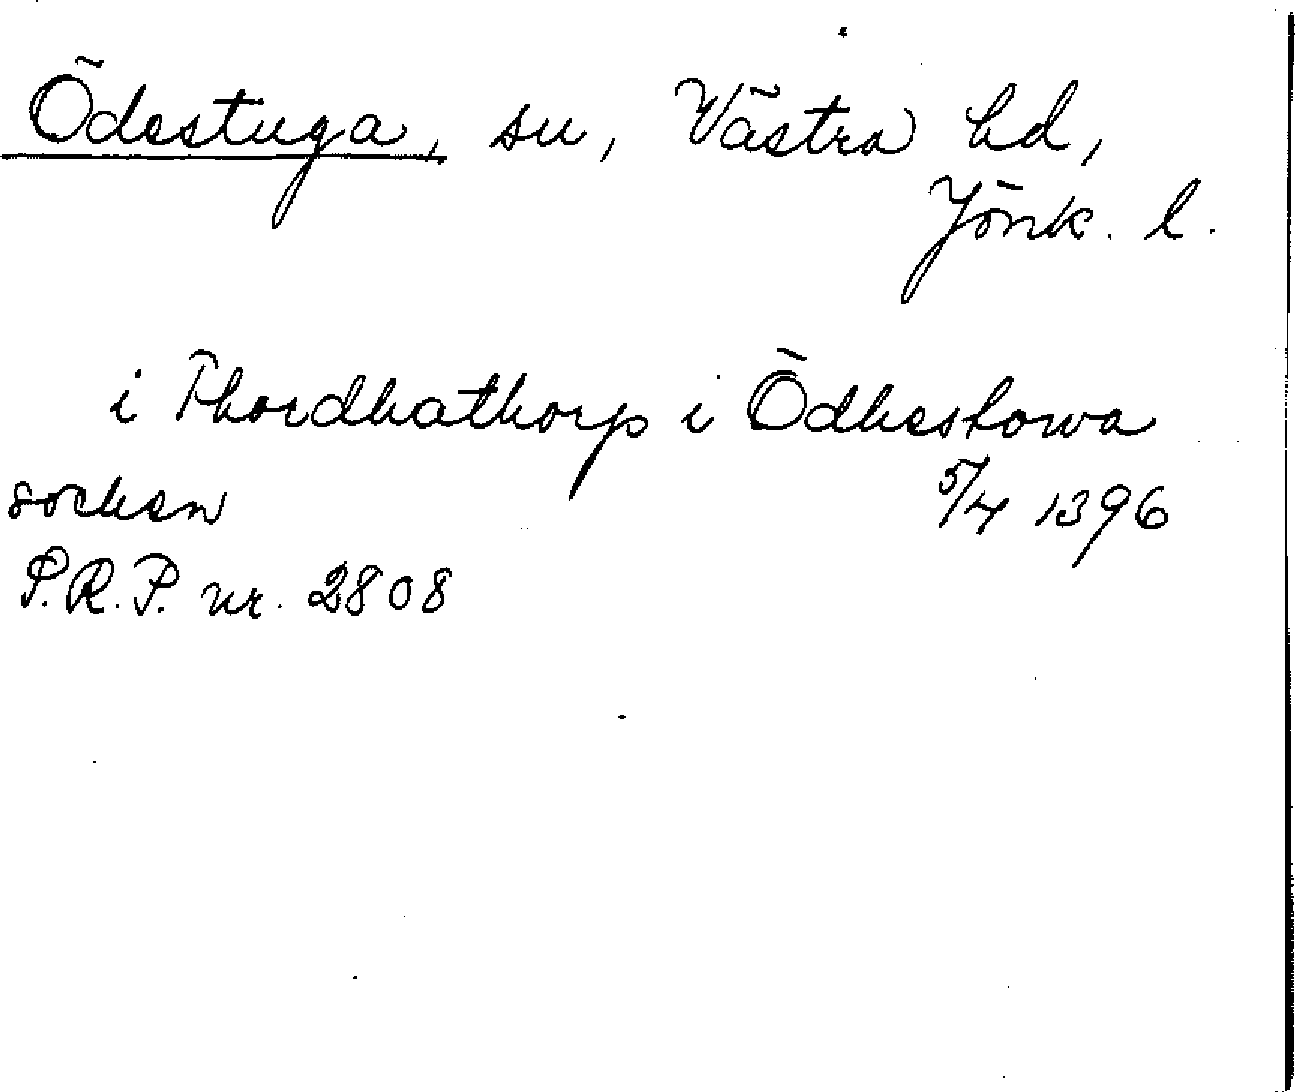 Ödestuga, sn, Västra hd,
Jönk. l.
i Thordhathorp i Ödhestowa
socken 5/4 1396
P.R.P. nr. 2808